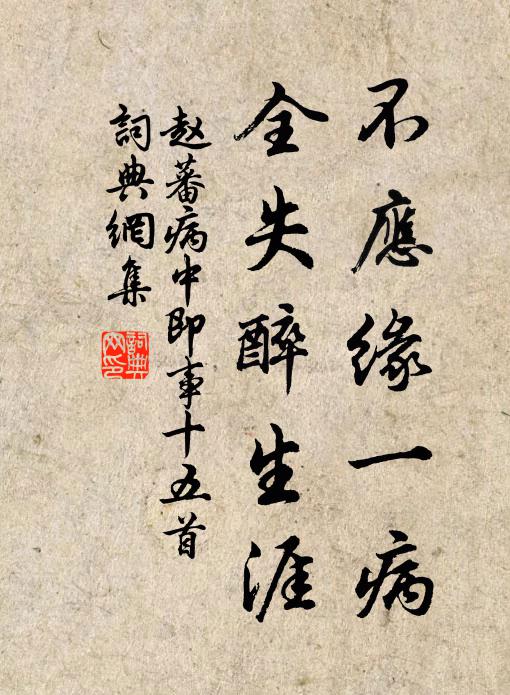 不應緣一病
全失醉生涯
赵蕃病中即事十五首
詞典網集
詞典
网印